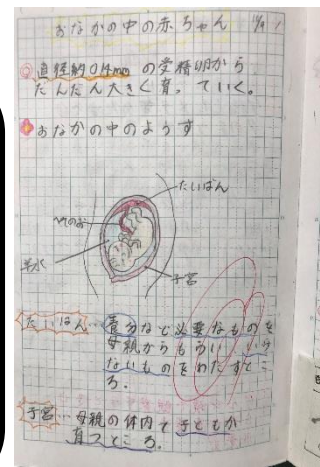 おなかの中の赤ちゃん
◎直径約0.14mmの受精卵から
だんだん大きく育っていく。
おなかの中のようす
たいばん
へそのお
羊水
子宮
たいばん…養分など必要なものを
母親からもらい、いら
ないものをわたすとこ
ろ。
子宮…母親の体内で子どもが
育つところ。